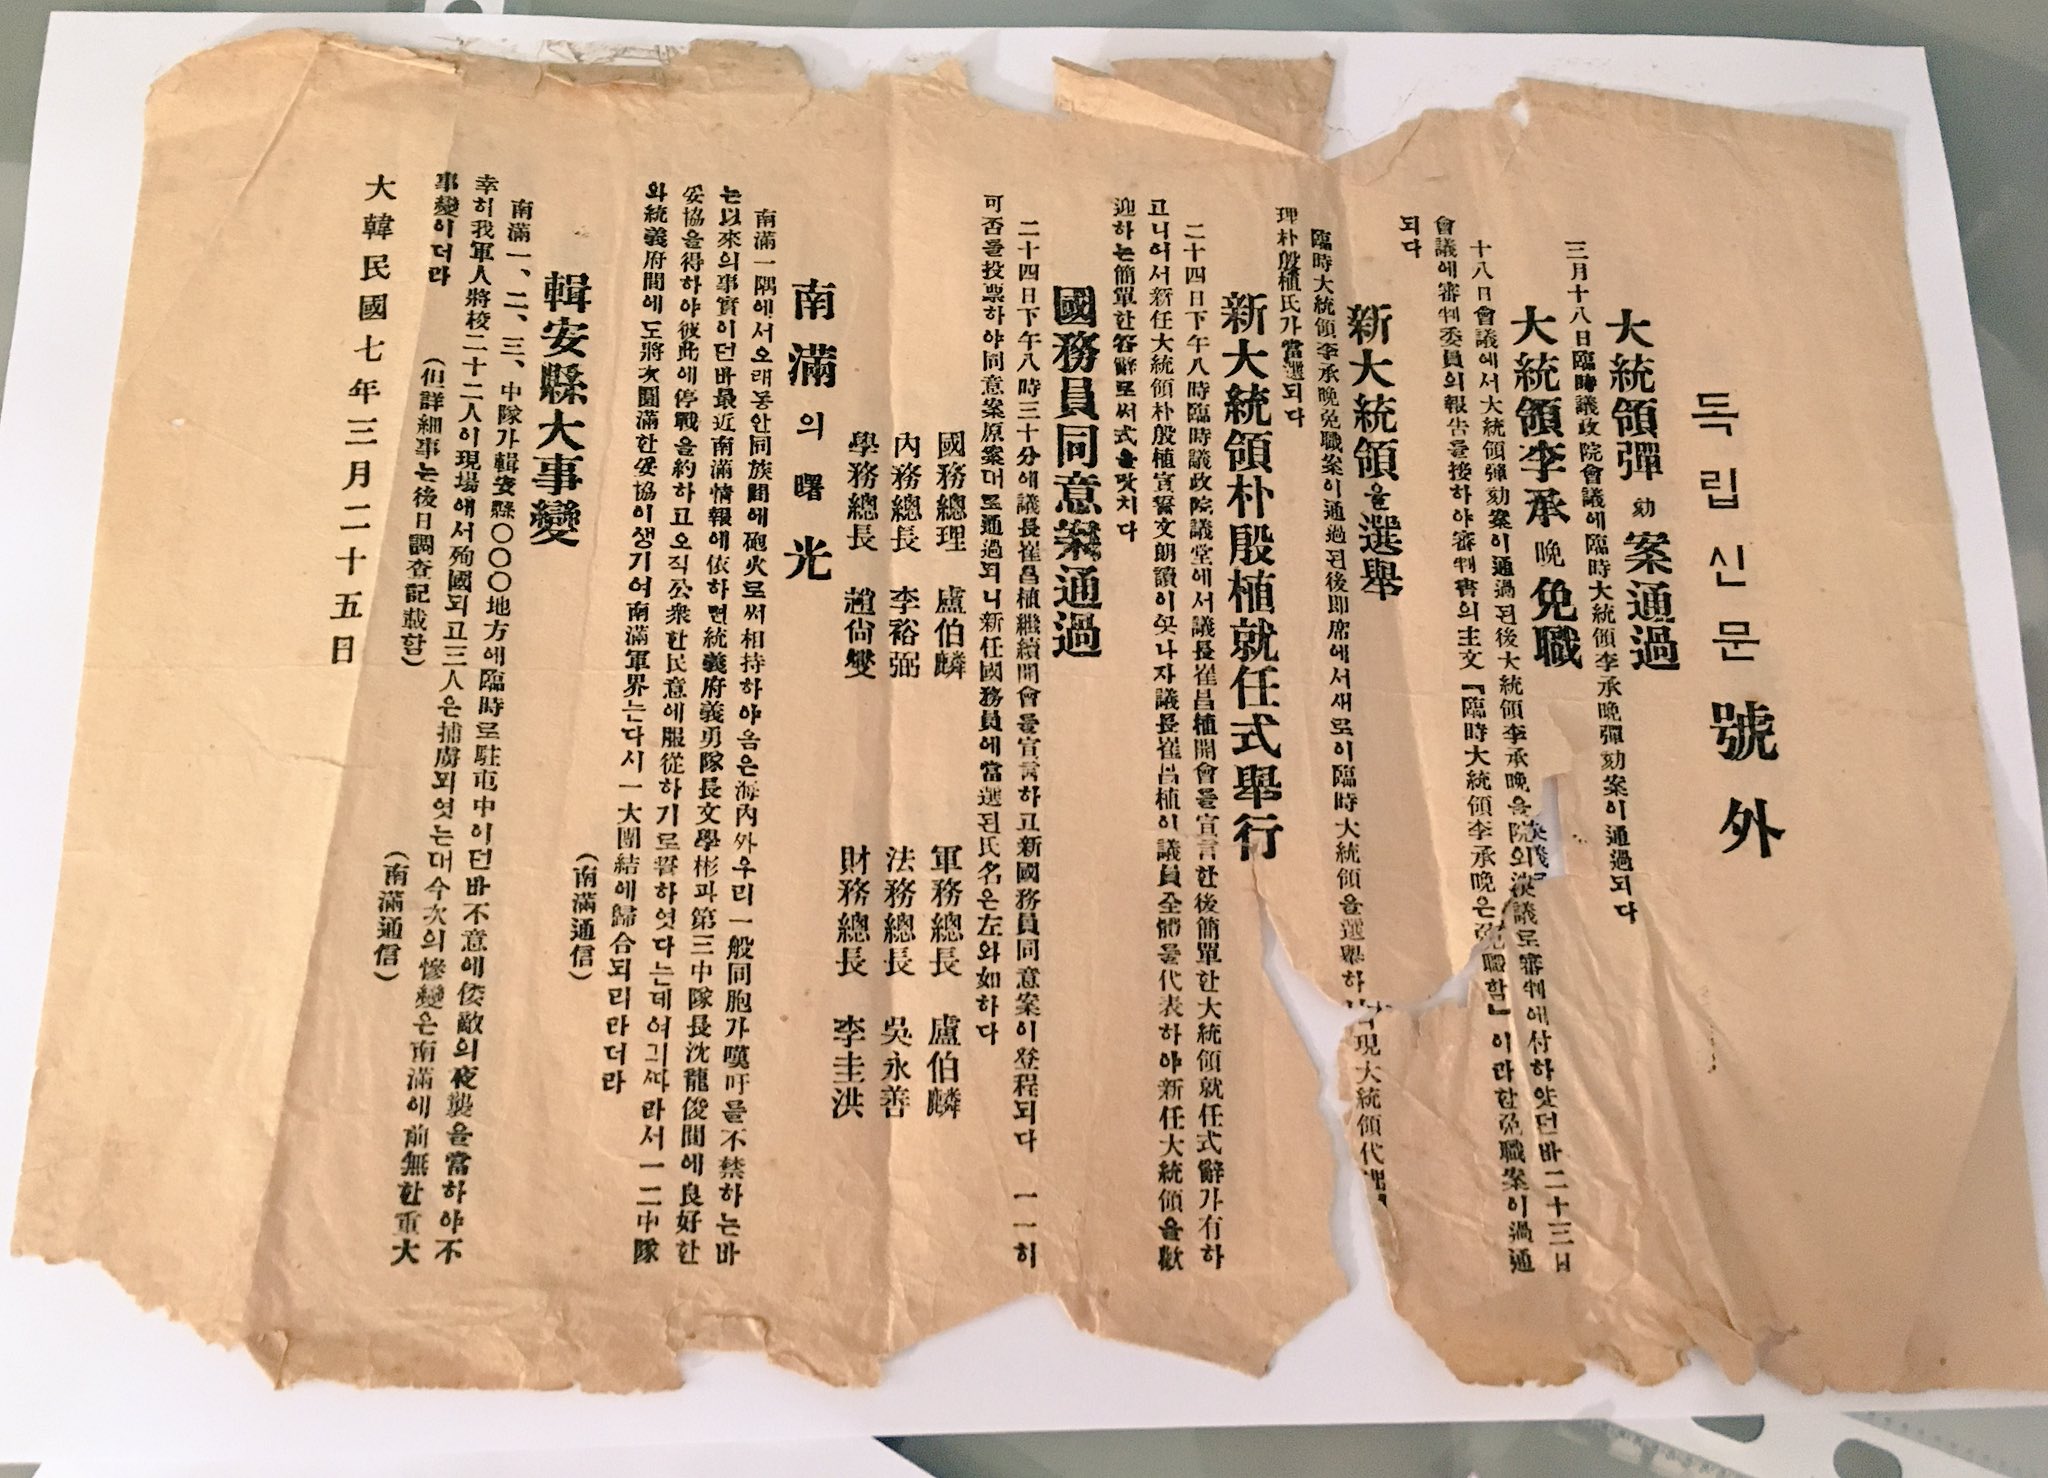 독립신문 號外
大統領彈劾案通過
三月十八日臨時議政院會議에臨時大統領李承晩彈劾案이通過되다
大統領李承晩免職
十八日會議에서大統領彈劾案이通過된後大統領李承晩을院의決議로審判에付하얏던바二十三日
會議에審判委員의報告를接하야審判書의主文『臨時大統領李承晩은免職함』이라한免職案이過通
되다
新大統領을選擧
臨時大統領李承晩免職案이通過된後即席에서새로이臨時大統領을選擧하 現大統領代理
理朴殷植氏가當選되다
新大統領朴殷植就任式擧行
二十四日下午八時臨時議政院議堂에서議長崔昌植開會를宣言한後簡單한大統領就任式辭가有하
고니어서新任大統領朴殷植宣誓文朗讀이잇나자議長崔昌植이議員全體를代表하야新任大統領을歡
迎하는簡單한答辭로써式을맛치다
國務員同意案通過
二十四日下午八時三十分에議長崔昌植繼續開會를宣言하고新國務員同意案이登程되다 一一히
可否를投票하야同意案原案대로通過되니新任國務員에當選된氏名은左와如하다
國務總理 盧伯麟 軍務總長 盧伯麟
內務總長 李裕弼 法務總長 吳永善
學務總長 趙尙燮 財務總長 李圭洪
南滿의曙光
南滿一隅에서오래동안同族間에砲火로써相持하야옴은海內外우리一般同胞가嘆吁를不禁하는바
는以來의事實이던바最近南滿情報에依하면統義府義勇隊長文學彬과第三中隊長沈龍俊間에良好한
妥協을得하야彼此에停戰을約하고오직公衆한民意에服從하기로誓하엿다는데여긔따라서一二中隊
와統義府間에도將次圓滿한妥協이생기여南滿軍界는다시一大團結에歸合되리라더라
(南滿通信)
輯安縣大事變
南滿一、二、三、中隊가輯安縣〇〇〇地方에臨時로駐屯中이던바不意에倭敵의夜襲을當하야不
幸히我軍人將校二十二人이現場에서殉國되고三人은捕虜되엿는대今次의慘變은南滿에前無한重大
事變이더라 (南滿通信)
(但詳細事는後日調査記載함)
大韓民國七年三月二十五日